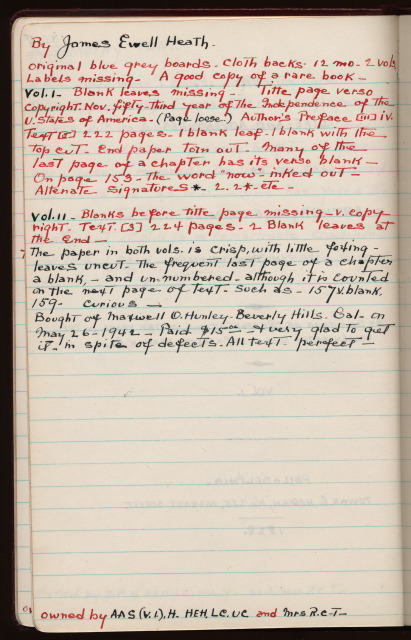 By James Ewell Heath.
original blue grey boards. Cloth backs. 12 mo. 2 vols
Labels missing. A good copy of a rare book.
Vol. 1. Blank leaves missing. Title page verso
Copyright. Nov. fifty-third year of the Independence of the
U. States of America. (Page loose.) Author's Preface [iii] iv.
Text [5] 222 pages. 1 blank leaf. 1 blank with the
Top cut. End paper torn out. Many of the
last page of a chapter has its verso blank.
On page 153. The word "now" inked out.
Altenate signatures *. 2. 2*. etc.
Vol. 11. Blanks before title page missing. v. copy-
right. Text. [3] 224 pages. 2 Blank leaves at
the End.
The paper in both vols. is crisp, with little foxing.
leaves uncut. The frequent last page of a chapter
a blank, and un-numbered. although it is counted
on the next page of text. Such as. 157 v. blank.
159. curious.
Bought of Maxwell O. Hunley. Beverly Hills. Cal. on
May 26-1942. Paid $15.00. & very glad to get
it. in spite of defects. All text. perefect.
owned by AAS (V. 1), H. HEH, LC. UC and Mrs R.C.T.